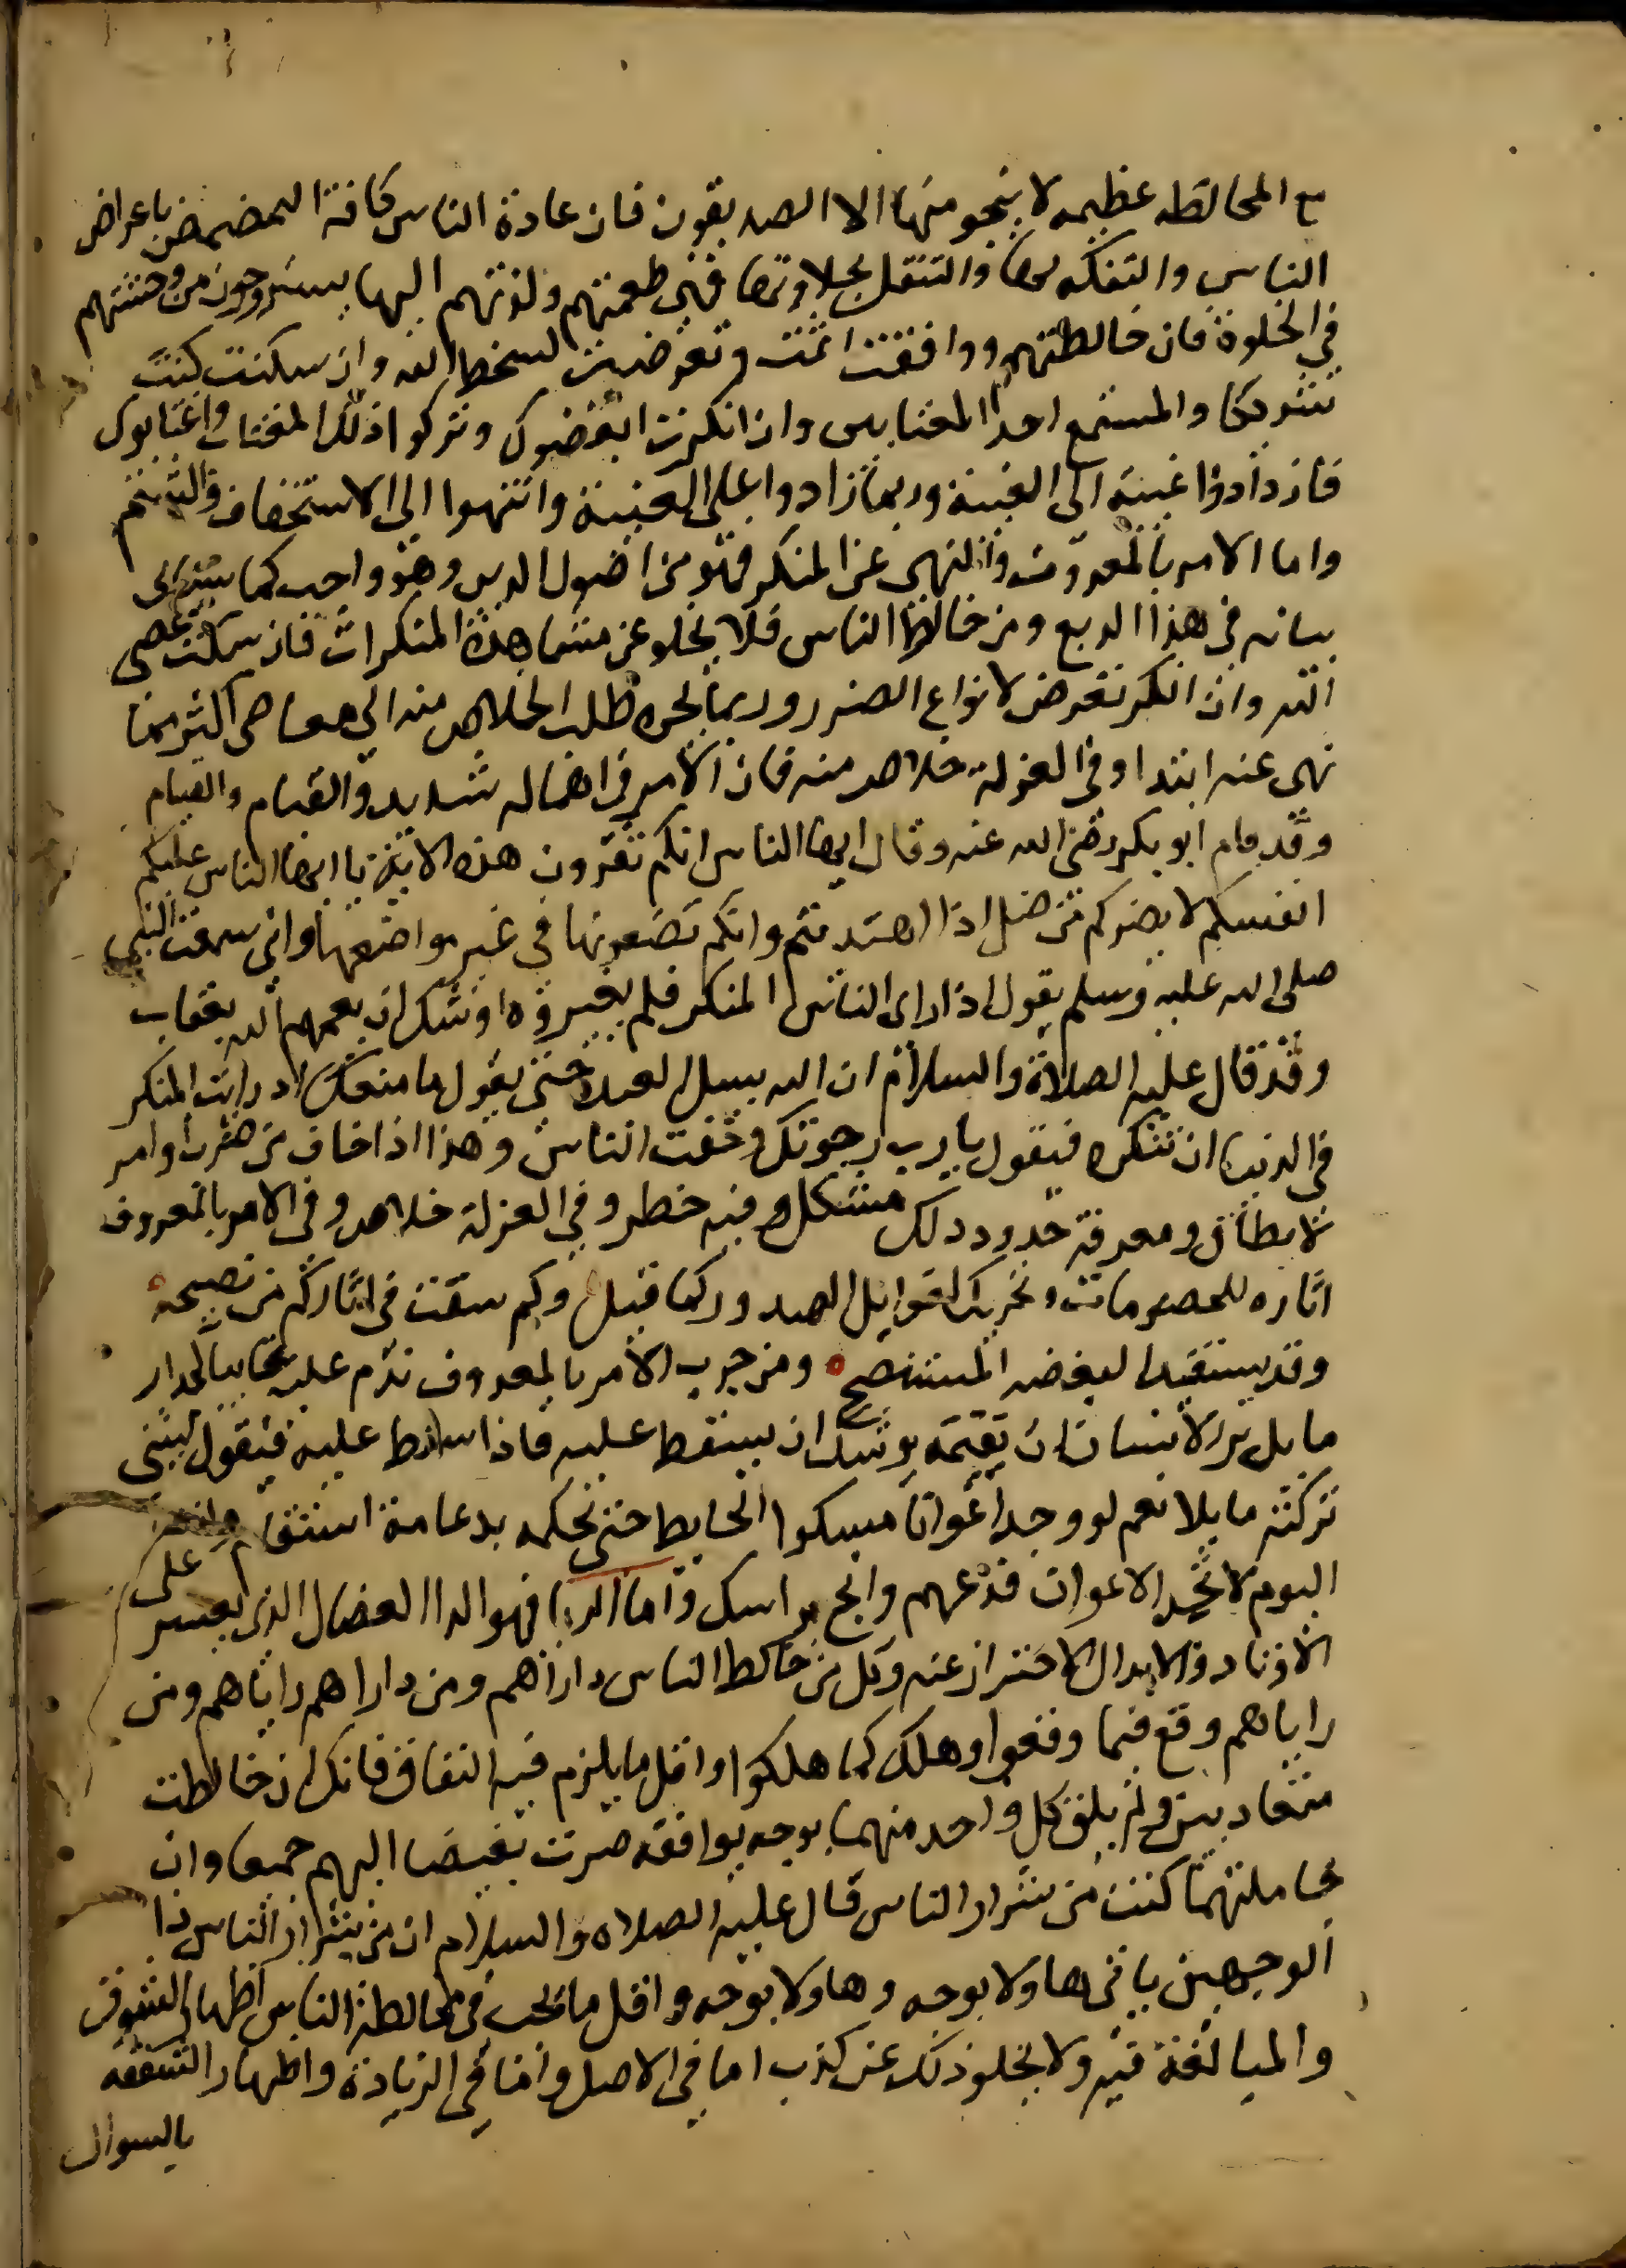 مع المخالطه عظيمه لا ينجو منها الا الصديقون فان عادة الناس كافة التمضمض باعراض
الناس والتفكه بها والتنقل بحلاوتها فهي طعمتهم ولذتهم اليها يستروحون من وحشتهم
في الخلوة فان خالطتهم ووافقت اثمت وتعرضت لسخط الله وان سكنت كنت
شريكا والمستمع احد المغتابين وان انكرت ابغضوك وتركوا ذلك المغتاب واغتابوك
فازدادوا غيبة الى الغيبة وربما زادوا على الغيبة وانتهوا الى الاستخفاف والشتم
واما الامر بالمعروف والنهي عن المنكر فهو من اصول الدين وهو واجب كما سياتي
بيانه في هذا الربع ومن خالط الناس فلا يخلو عن مشاهدة المنكرات فان سكت عصى
الله وان انكر تعرض لانواع الضرر وربما يجره طلب الخلاص منه الى معاصي اكثر مما
نهى عنه ابتدا وفي العزلة خلاص منه فان الامر في اهماله شديد والقيام والقيام
وقد قام ابو بكر رضي الله عنه وقال ايها الناس انكم تقرون هذه الاية يا ايها الناس عليكم
انفسكم لا يضركم من ضل اذا اهتديتم وانكم تضعونها في غير مواضعها واني سمعت النبي
صلى الله عليه وسلم يقول اذا راى الناس المنكر فلم يغيروه اوشك ان يعمهم الله بعقاب
وقد قال عليه الصلاة والسلام ان الله يسل العبد حتى يقول ما منعك اد رايت المنكر
في الدنيا ان تنكره فيقول يا رب رجوتك وخفت الناس وهذا اذا خاف من ضرب او امر
لا يطاق ومعرفة حدود ذلك مشكل وفيه خطر وفي العزلة خلاص وفي الامر بالمعروف
اثاره للخصومات وتحريك لغوايل الصدور كما قيل وكم سقت في اثاركم من نصيحة
وقد يستفيد البغضه المستنصح ومن جرب الامر بالمعروف ندم عليه غالبا كجدار
مايل يريد الانسان ان يقيمه يوشك ان يسقط عليه فاذا سقط عليه فيقول ليتني
تركته مايلا نعم لو وجد اعوانا مسكوا الحايط حتى يحكمه بدعامة استقام وانت
اليوم لا تجد الاعوان فدعهم وانج براسك واما الريا فهو الدا العضال الذي يعسر على
الاوتاد والابدال الاحتراز عنه وكل من خالط الناس داراهم ومن داراهم راياهم ومن
راياهم وقع فيما وقعوا وهلك كما هلكوا واقل ما يلزم فيه النفاق فانك ان خالطت
متعاديين ولم يلق كل واحد منهما بوجه يوافقه صرت بغيضا اليهم جميعا وان
جاملتهما كنت من شرار الناس قال عليه الصلاه والسلام ان من شرار الناس ذا
الوجهين ياتي هاولا بوجه وهاولا بوجه واقل ما يجب في مخالطة الناس اظهار الشوق
والمبالغة فيه ولا يخلو ذلك عن كذب اما في الاصل واما في الزيادة واظهار الشفقة
بالسوال